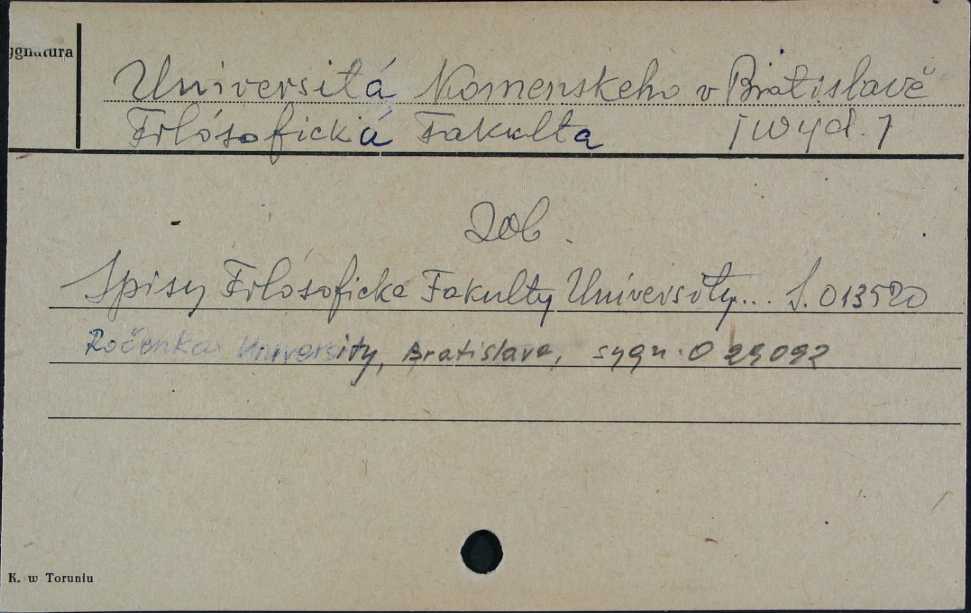 ygnatura
Universitá Komenskeho v Bratislavě
Filósofická Fakulta [wyd.]
zob.
Spisy Filósofické Fakulty University... S. 013520
Ročenka University, Bratislava, sygn. O 29092
K. w Toruniu